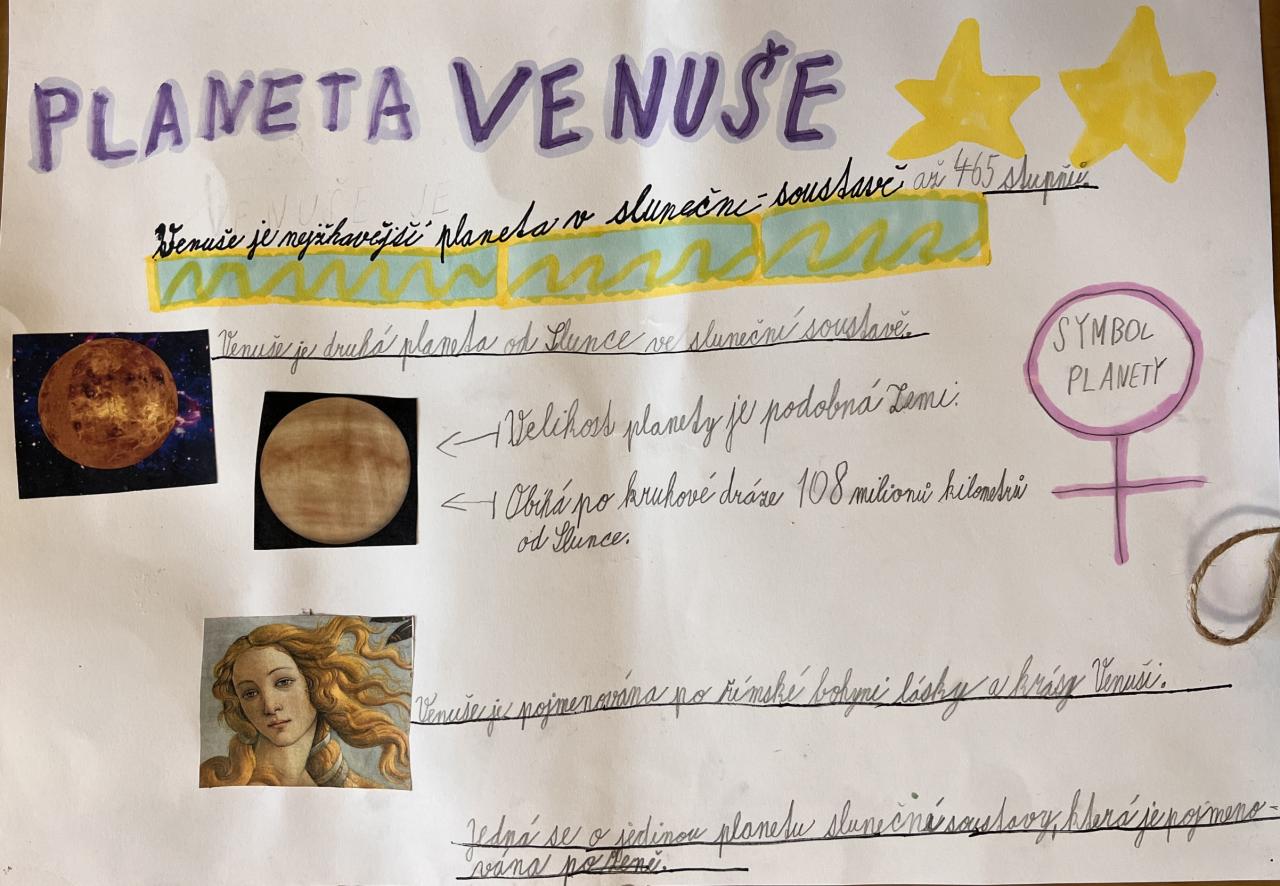 PLANETA VENUŠE
VENUŠE JE
Venuše je nejžhavější planeta v sluneční soustavě až 465 stupňů.
Venuše je druhá planeta od Slunce ve sluneční soustavě.
SYMBOL
PLANETY
Velikost planety je podobná Zemi.
Obíhá po kruhové dráze 108 milionů kilometrů
od Slunce.
Venuše je pojmenována po římské bohyni lásky a krásy Venuši.
Jedná se o jedinou planetu sluneční soustavy, která je pojmeno-
vána po ženě.